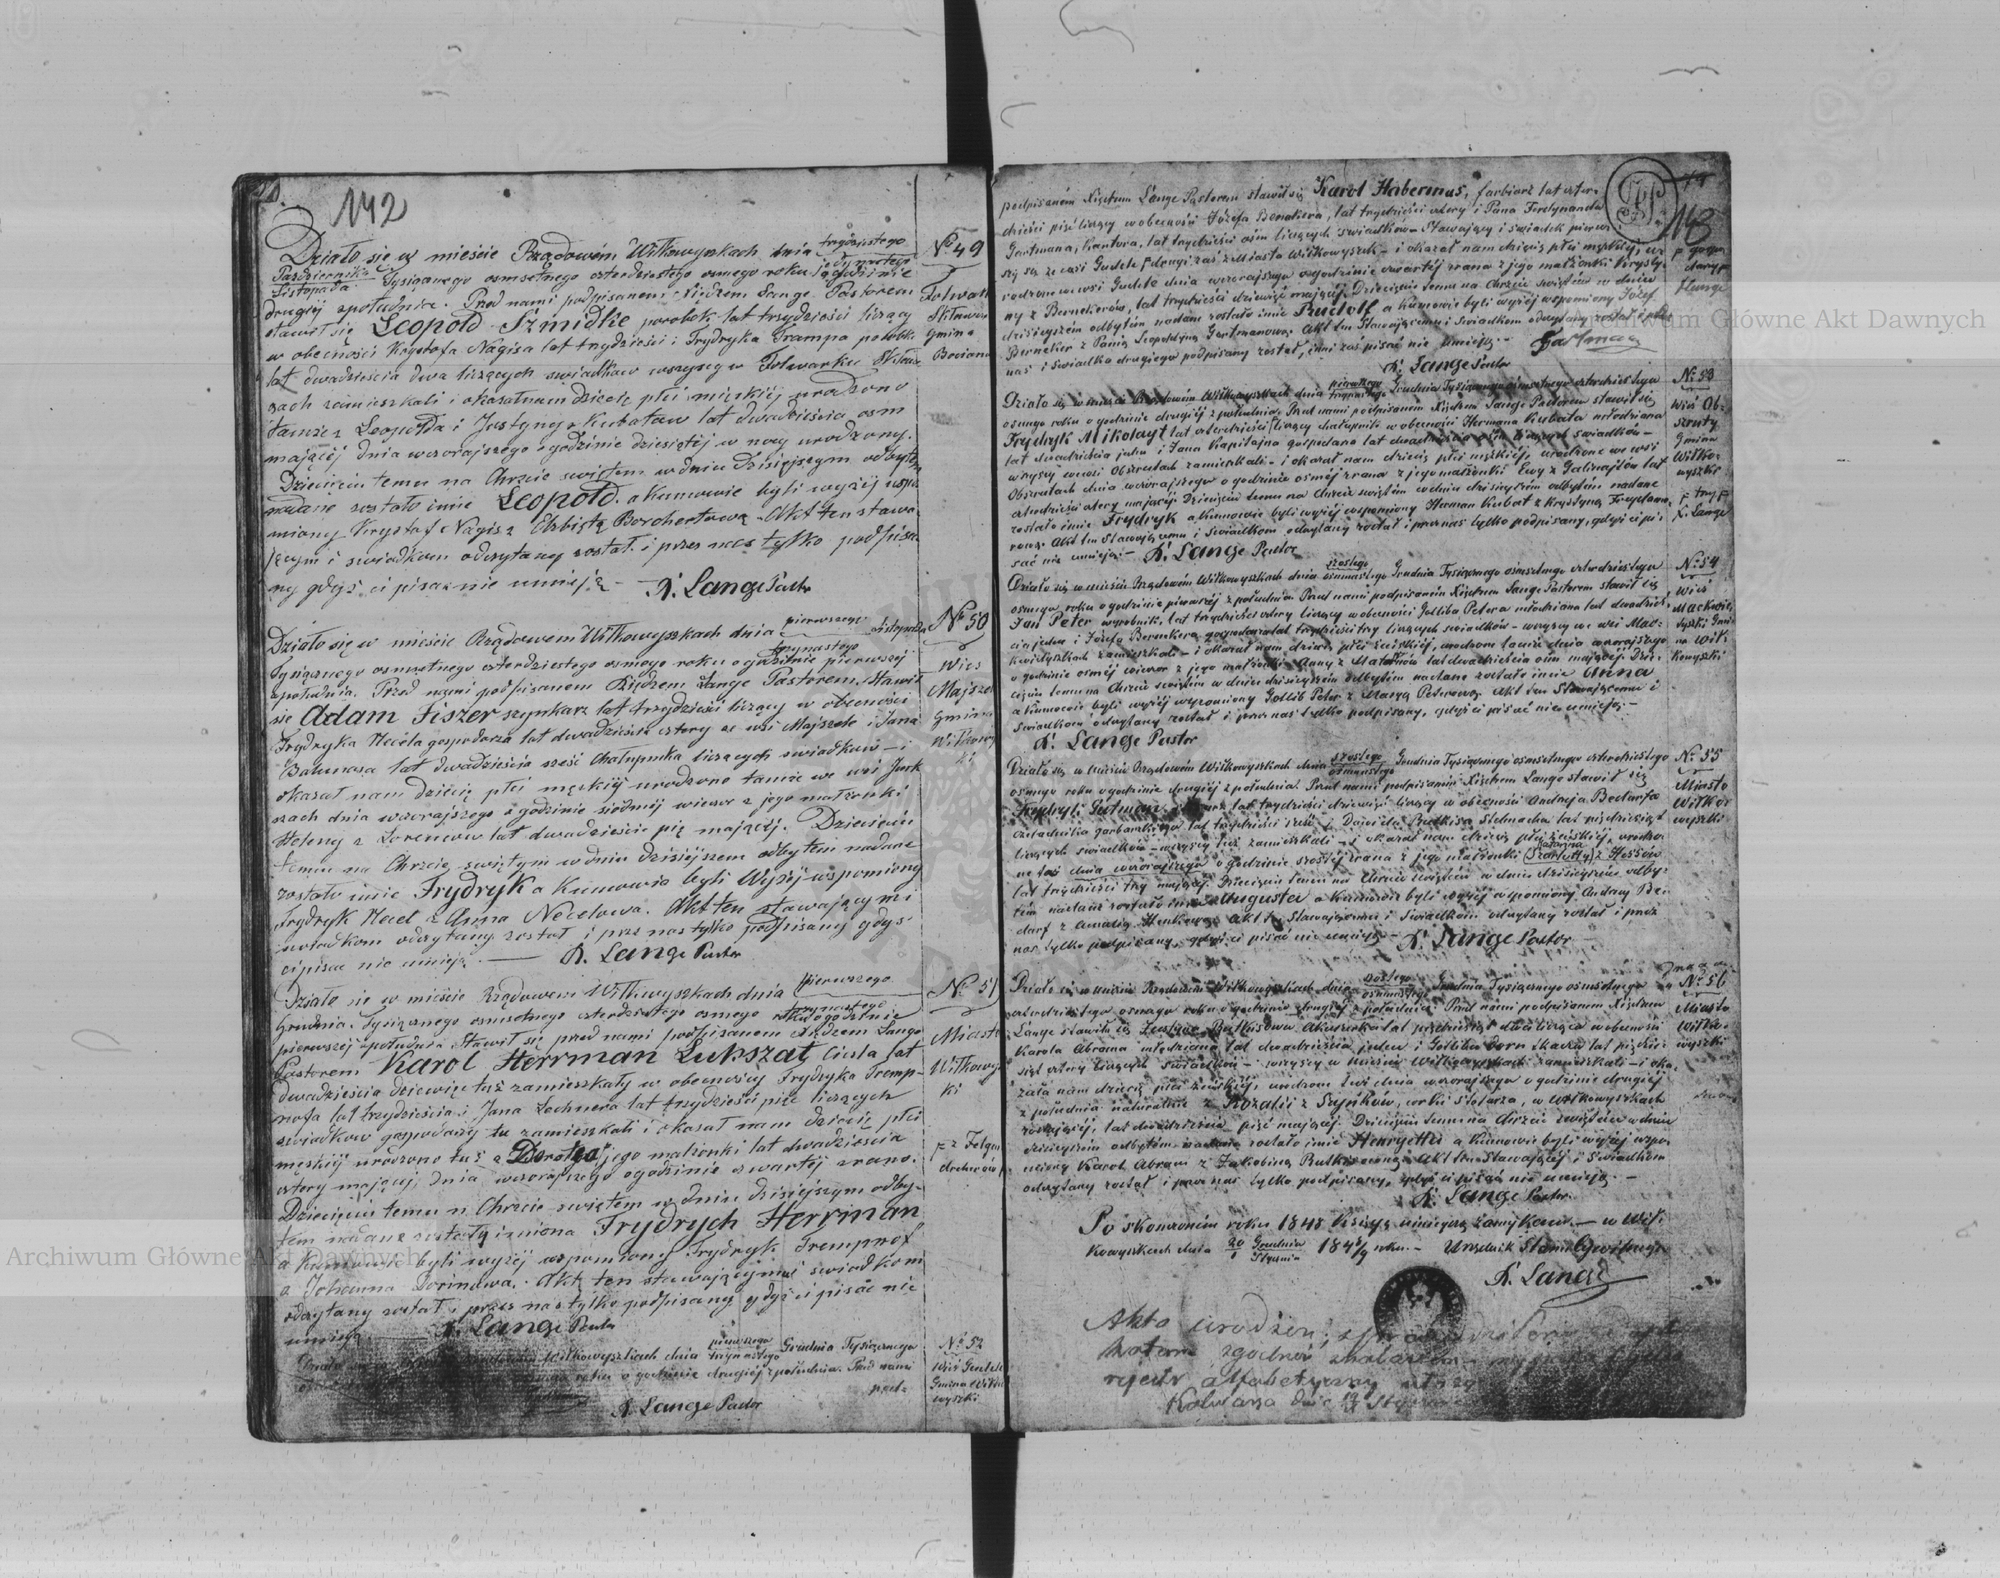 142
Działo się w mieście Rządowem Wiłkowyszkach dnia trzydziestego
Października jedynastego
Listopada Tysiącznego osmsetnego czterdziestego osmego roku o godzinie
drugiej z południa. Przed nami podpisanem Xiędzem Lange Pastorem
stawił się Leopold Szmidtke parobek lat trzydzieści liczący
w obecności Krysztofa Nagisa lat trzydzieści i Frydryka Trampa parobka
lat dwadzieścia dwa liczących świadków wszyscy w Folwarku
zamieszkali i okazał nam dziecię płci męzkiej urodzone
tamże z Leopolda i Justyny z Kubatów lat dwadzieścia osm
mającej dnia wczorajszego o godzinie dziesiętej w nocy urodzony.
Dziecięciu temu na Chrzcie świętem w dniu dzisiejszym odbytem
nadane zostało imie Leopold, a Kumowie byli wyżej wspo-
mniony Krysztof Nagis z Elzbietą Borchertową. Akt ten stawa-
jącym i świadkom odczytany zostal i przez nas tylko podpisa-
ny gdyż ci pisać nie umieją — X. Lange Pastor
No 49
Folwark
Gmina
Działo się w mieście Rządowem Wiłkowyszkach dnia pierwszego Listopada
trzynastego
Tysiącznego osmsetnego czterdziestego osmego roku o godzinie pierwszej
z południa. Przed nami podpisanem Xiędzem Lange Pastorem stawił
sie Adam Fiszer szynkarz lat trzydzieści liczący w obecności
Frydryka Hecela gospodarza lat dwadzieścia cztery ze wsi Majszele i Jana
lat dwadzieścia sześć chałupnika liczących świadków — i
okazał nam dziecię płci męzkiej urodzone tamże we wsi
dnia wczorajszego o godzinie siódmej wieczor z jego małżonki
Heleny z Lorencow lat dwadzieścia pię mającej. Dziecięciu
temu na Chrzcie świętym w dniu dzisiejszem odbytem nadane
zostało imie Frydryk a Kumowie byli Wyżej wspomniony
Frydryk Hecel z Anna Necelowa. Akt ten stawającym i
świadkom odczytany zostal i przez nas tylko podpisany gdyś
ci pisac nie umieją. — X. Lange Pastor
No 50
Wies
Gmina
Działo się w mieście Rządowem Wiłkowyszkach dnia pierwszego
trzynastego
Grudnia. Tysiącznego osmsetnego czterdziestego osmego roku o godzinie
pierwszej z południa. Stawił się przed nami podpisanem Xiędzem Lange
Pastorem Karol Herrman Lukszat Ciesla lat
dwadzieścia dziewięć tuż zamieszkały w obecności Frydryka Tremp-
nofa lat trzydzieścia i Jana Lechnera lat trzydzieści pięc liczących
świadkow gospodarzy tu zamieszkali i okazał nam dziecię płci
męskiej urodzone tuż z Dorotea jego malżonki lat dwadzieścia
cztery mającej, dnia wczorajszego o godzinie czwartej zrano.
Dziecięciu temu n Chrzcie świętem w dniu dzisiejszym odby-
tem nadane zostały imiona Frydrych Herrman
a Kumowie byli wyżej wspomniony Frydryk Trempnof
a Johanna Dorinowa. Akt ten stawającymu i swiadkom
odczytany zostal i przez nas tylko podpisany gdyż ci pisać nie
umieją. — X. Lange Pastor
No 51
Miasto
Wiłkowysz-
ki
Wiłkowyszkach dnia pierwszego Grudnia Tysiącznego
trzynastego
roku o godzinie drugiej z południa. Przed nami
pod-
X. Lange Pastor
No 52
Wieś Gudele
Gmina Wiłko-
wyszki
143
podpisanem Xiędzem Lange Pastorem stawił się Karol Habermas, farbierz lat czter-
dzieści pięć liczący w obecności Józefa Bernekera, lat trzydzieści cztery i Pana Ferdynanda
Gantmana, Kantora, lat trzydzieści ośm liczących świadków. Stawający i świadek pierw-
szy są ze wsi Gudele drugi zaś z Miasta Wiłkowyszek — i okazał nam dziecię płci męzkiej, u-
rodzone we wsi Gudele dnia wczorajszego o godzinie czwartej zrana z jego małżonki Krysty-
ny z Bernekerów, lat trzydzieści dziewięć mającej. Dziecięciu temu na Chrzcie świętem w dniu
dzisiejszem odbytem nadane zostało imie Rudolf a Kumowie byli wyżej wspomniony Józef
Berneker z Panią Leopoldyną Gantmanową. Akt ten Stawającemu i świadkom odczytany został i przez
nas i świadka drugiego podpisany został, inni zaś pisać nie umieją. —
X. Lange Pastor
Działo się w mieście Rządowem Wiłkowyszkach dnia pierwszego Grudnia Tysiącznego ośmsetnego czterdziestego
trzynastego
osmego roku o godzinie drugiej z południa. Przed nami podpisanem Xiędzem Lange Pastorem stawił się
Frydryk Mikolayt lat czterdzieści liczący chałupnik w obecności Hermana Kubata młodziana
lat dwadzieścia jeden i Jana Kapitajna gospodarza lat dwadzieścia ośm liczących świadków —
wszyscy we wsi Obszrutach zamieszkali — i okazał nam dziecię płci męzkiej, urodzone we wsi
Obszrutach dnia wczorajszego o godzinie osmej zrana z jego małżonki Ewy z Galinajtów lat
czterdzieści cztery mającej. Dziecięciu temu na chrzcie świętem w dniu dzisiejszym odbytem nadane
zostało imie Frydryk a Kumowie byli wyżej wspomniony Herman Kubat z Krystyną
Akt ten Stawającemu i Świadkom odczytany został i przez nas tylko podpisany, gdyż ci pi-
sać nie umieją. — X. Lange Pastor
No 53
Wieś Ob-
szruty
Gmina
Wiłko-
wyszki
X. Lange
Działo się w mieście Rządowem Wiłkowyszkach dnia szostego Grudnia Tysiącznego ośmsetnego czterdziestego
osmnastego
osmego roku o godzinie pierwszej z południa. Przed nami podpisanem Xiędzem Lange Pastorem stawił się
Jan Peter wyrobnik, lat trzydzieści cztery liczący w obecności Gottliba Petera młodziana lat dwadzieś-
cia jeden i Józefa Bernekera gospodarza lat trzydzieści trzy liczących świadków — wszyscy we wsi Mać-
kwidyszkach zamieszkali — i okazał nam dziecię płci żeńskiej, urodzone tamże dnia wczorajszego
o godzinie osmej wieczor z jego małżonki Anny z lat dwadzieścia ośm mającej. Dzie-
cięciu temu na Chrzcie świętem w dniu dzisiejszem odbytem nadane zostało imie Anna
a Kumowie byli wyżej wspomniony Gottlib Peter z Maryą Peterową. Akt ten Stawającemu i
świadkom odczytany został i przez nas tylko podpisany, gdyż ci pisać nie umieją. —
X. Lange Pastor
No 54
Wieś
na Wił-
kowyszki
Działo się w mieście Rządowem Wiłkowyszkach dnia szostego Grudnia Tysiącznego ośmsetnego czterdziestego
osmnastego
osmego roku o godzinie drugiej z południa. Przed nami podpisanem Xiędzem Lange stawił się
Frydryk Gutman lat trzydzieści dziewięć liczący w obecności Andrzeja Bedarfa
czeladnika garbarskiego lat trzydzieści sześć i Daniela Rutkisa Stelmacha lat
liczących świadków — wszyscy tuż zamieszkali — i okazał nam dziecię płci żeńskiej, urodzo-
ne tuż dnia wczorajszego o godzinie szostej zrana z jego małżonki Szarlotty z Hessów
lat trzydzieści trzy mającej. Dziecięciu temu na Chrzcie świętem w dniu dzisiejszem odby-
tem nadane zostało imie Augusta a Kumowie byli wyżej wspomniony Andrzej Be-
darf z Amalią Henkową. Akt ten Stawającemu i Świadkom odczytany został i przez
nas tylko podpisany, gdyż ci pisać nie umieją. — X. Lange Pastor
No 55
Miasto
Wiłko-
wyszki
Działo się w mieście Rządowem Wiłkowyszkach dnia szostego Grudnia Tysiącznego ośmsetnego
osmnastego
czterdziestego osmego roku o godzinie drugiej z południa. Przed nami podpisanem Xiędzem
Lange stawiła się Justyna Rutkisowa Akuszerka lat pięćdziesiąt dwa licząca w obecności
Karola Abrama młodziana lat dwadzieścia jeden i Gottliba lat pięćdzie-
siąt cztery liczących świadków — wszyscy w mieście Wiłkowyszkach zamieszkali — i oka-
zała nam dziecię płci żeńskiej, urodzone tuż dnia wczorajszego o godzinie drugiej
z południa naturalnie z Rozalii z córki Stolarza, w Wiłkowyszkach
rodzącej, lat dwadzieścia pięć mającej. Dziecięciu temu na Chrzcie świętem w dniu
dzisiejszem odbytem nadane zostało imie Henryetta a Kumowie byli wyżej wspo-
mniony Karol Abram z Jakobiną Rutkisowną. Akt ten Stawającej i Świadkom
odczytany został i przez nas tylko podpisany, gdyż ci pisać nie umieją. —
X. Lange Pastor
No 56
Miasto
Wiłko-
wyszki
Po skonczeniu roku 1848 Księgę niniejszą zamykam. — w Wił-
kowyszkach dnia 20 Grudnia 1848/9 roku. — Urzędnik Stanu Cywilnego
1 Stycznia
X. Lange
Akta urodzeń
rejestr alfabetyczny
Kalwarya dnia
Archiwum Główne Akt Dawnych
Archiwum Główne Akt Dawnych